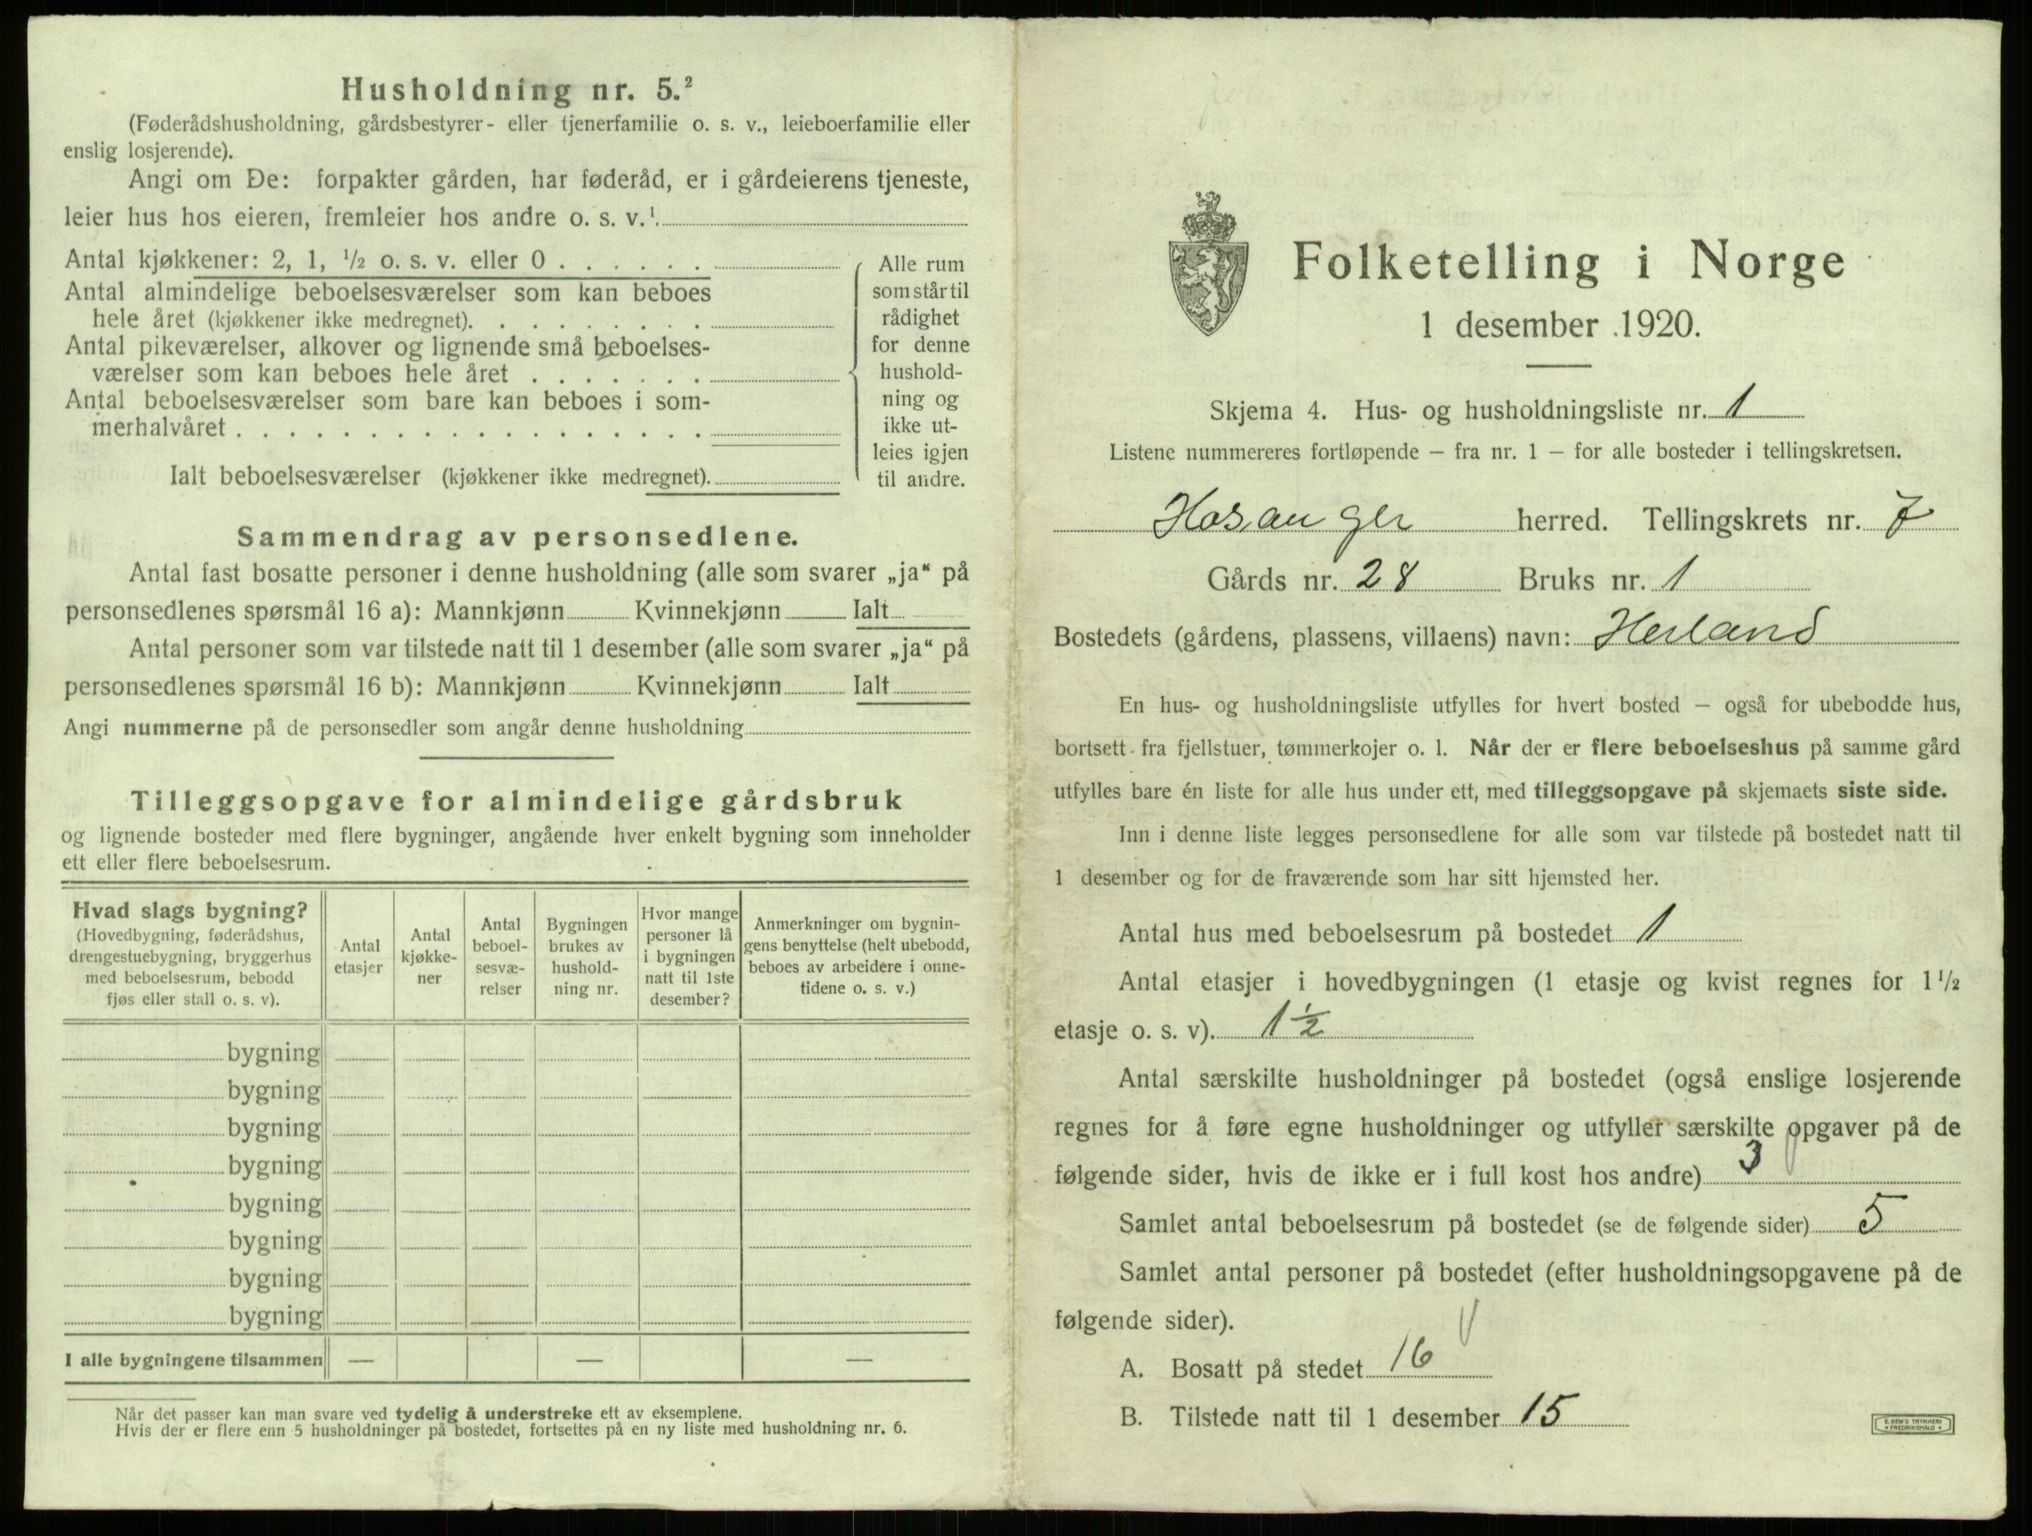 Husholdning nr. 5.²
(Føderådshusholdning, gårdsbestyrer- eller tjenerfamilie o. s. v., leieboerfamilie eller
enslig losjerende).
Angi om De: forpakter gården, har føderåd, er i gårdeierens tjeneste,
leier hus hos eieren, fremleier hos andre o. s. v.¹
Antal kjøkkener: 2, 1, ½ o. s. v. eller 0 . . . . . .
Antal almindelige beboelsesværelser som kan beboes
hele året (kjøkkener ikke medregnet). . . . . . . . .
Antal pikeværelser, alkover og lignende små beboelses-
værelser som kan beboes hele året . . . . . . .
Antal beboelsesværelser som bare kan beboes i som-
merhalvåret . . . . . . . . . . . . . . . . . .
Ialt beboelsesværelser (kjøkkener ikke medregnet).
Alle rum
som står til
rådighet
for denne
hushold-
ning og
ikke ut-
leies igjen
til andre.
Sammendrag av personsedlene.
Antal fast bosatte personer i denne husholdning (alle som svarer „ja“ på
personsedlenes spørsmål 16 a): Mannkjønn Kvinnekjønn Ialt
Antal personer som var tilstede natt til 1 desember (alle som svarer „ja“ på
personsedlenes spørsmål 16 b): Mannkjønn Kvinnekjønn Ialt
Angi nummerne på de personsedler som angår denne husholdning
Tilleggsopgave for almindelige gårdsbruk
og lignende bosteder med flere bygninger, angående hver enkelt bygning som inneholder
ett eller flere beboelsesrum.
Hvad slags bygning?
(Hovedbygning, føderådshus,
drengestuebygning, bryggerhus
med beboelsesrum, bebodd
fjøs eller stall o. s. v).
Antal
etasjer
Antal
kjøkke-
ner
Antal
beboel-
sesvæ-
relser
Bygningen
brukes av
hushold-
ning nr.
Hvor mange
personer lå
i bygningen
natt til 1ste
desember?
Anmerkninger om bygnin-
gens benyttelse (helt ubebodd,
beboes av arbeidere i onne-
tidene o. s. v.)
bygning
bygning
bygning
bygning
bygning
bygning
bygning
bygning
I alle bygningene tilsammen — — —
Når det passer kan man svare ved tydelig å understreke ett av eksemplene.
Hvis der er flere enn 5 husholdninger på bostedet, fortsettes på en ny liste med husholdning nr. 6.
Folketelling i Norge
1 desember 1920.
Skjema 4. Hus- og husholdningsliste nr. 1
Listene nummereres fortløpende – fra nr. 1 – for alle bosteder i tellingskretsen.
Hosanger herred. Tellingskrets nr. 7
Gårds nr. 28 Bruks nr. 1
Bostedets (gårdens, plassens, villaens) navn: Herland
En hus- og husholdningsliste utfylles for hvert bosted – også for ubebodde hus,
bortsett fra fjellstuer, tømmerkojer o. l. Når der er flere beboelseshus på samme gård
utfylles bare én liste for alle hus under ett, med tilleggsopgave på skjemaets siste side.
Inn i denne liste legges personsedlene for alle som var tilstede på bostedet natt til
1 desember og for de fraværende som har sitt hjemsted her.
Antal hus med beboelsesrum på bostedet 1
Antal etasjer i hovedbygningen (1 etasje og kvist regnes for 1½
etasje o. s. v). 1½
Antal særskilte husholdninger på bostedet (også enslige losjerende
regnes for å føre egne husholdninger og utfyller særskilte opgaver på de
følgende sider, hvis de ikke er i full kost hos andre) 3
Samlet antal beboelsesrum på bostedet (se de følgende sider) 5
Samlet antal personer på bostedet (efter husholdningsopgavene på de
følgende sider).
A. Bosatt på stedet 16
B. Tilstede natt til 1 desember 15
E. SEM'S TRYKKERI
FREDRIKSHALD